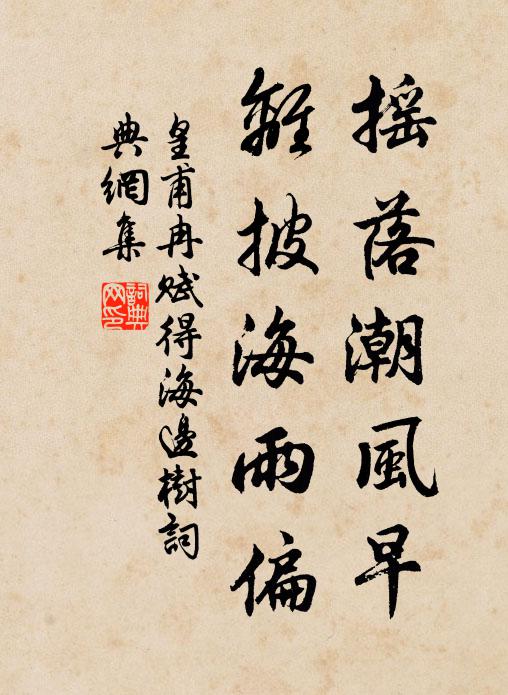 摇落潮風早
離披海雨偏
皇甫冉賦得海邊樹詞
典網集
詞典網印